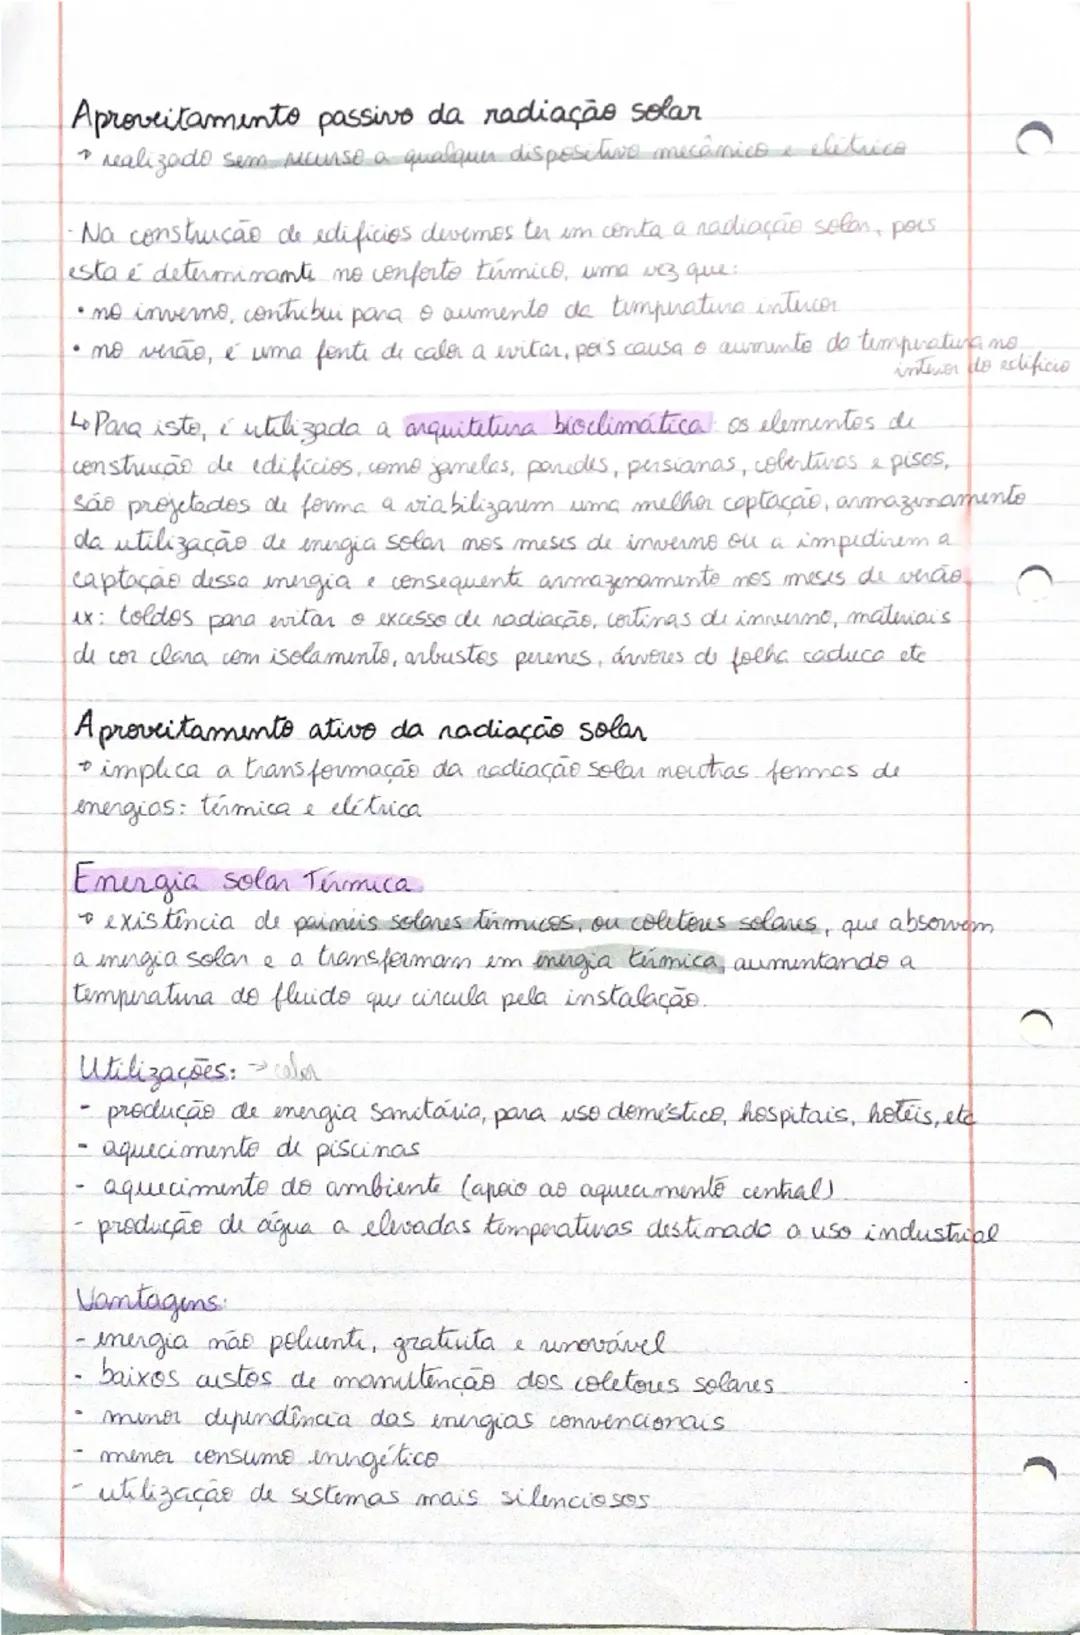 Aproveitamento passivo da radiação solar
→ realizado sem recurso a qualquer dispositivo mecânico e elétrico
- Na construção de edifícios devemos ter em conta a radiação solar, pois
esta é determinante no conforto térmico, uma vez que:
• no inverno, contribui para o aumento da temperatura interior
• no verão, é uma fonte de calor a evitar, pois causa o aumento da temperatura no
interior do edifício
↳ Para isto, é utilizada a arquitetura bioclimática: os elementos de
construção de edifícios, como janelas, paredes, persianas, coberturas e pisos,
são projetados de forma a viabilizarem uma melhor captação, armazenamento
da utilização de energia solar nos meses de inverno ou a impedirem a
captação dessa energia e consequente armazenamento nos meses de verão.
ex: toldos para evitar o excesso de radiação, cortinas de inverno, materiais
de cor clara com isolamento, arbustos perenes, árvores de folha caduca etc
Aproveitamento ativo da radiação solar
→ implica a transformação da radiação solar noutras formas de
energias: térmica e elétrica
Energia solar Térmica
→ existência de painéis solares térmicos, ou coletores solares, que absorvem
a energia solar e a transformam em energia térmica, aumentando a
temperatura do fluido que circula pela instalação.
Utilizações: → calor
- produção de energia sanitária, para uso doméstico, hospitais, hotéis, etc
- aquecimento de piscinas
- aquecimento do ambiente (apoio ao aquecimento central)
- produção de água a elevadas temperaturas destinado a uso industrial
Vantagens:
- energia não poluente, gratuita e renovável
- baixos custos de manutenção dos coletores solares
- menor dependência das energias convencionais
- menor consumo energético
- utilização de sistemas mais silenciosos